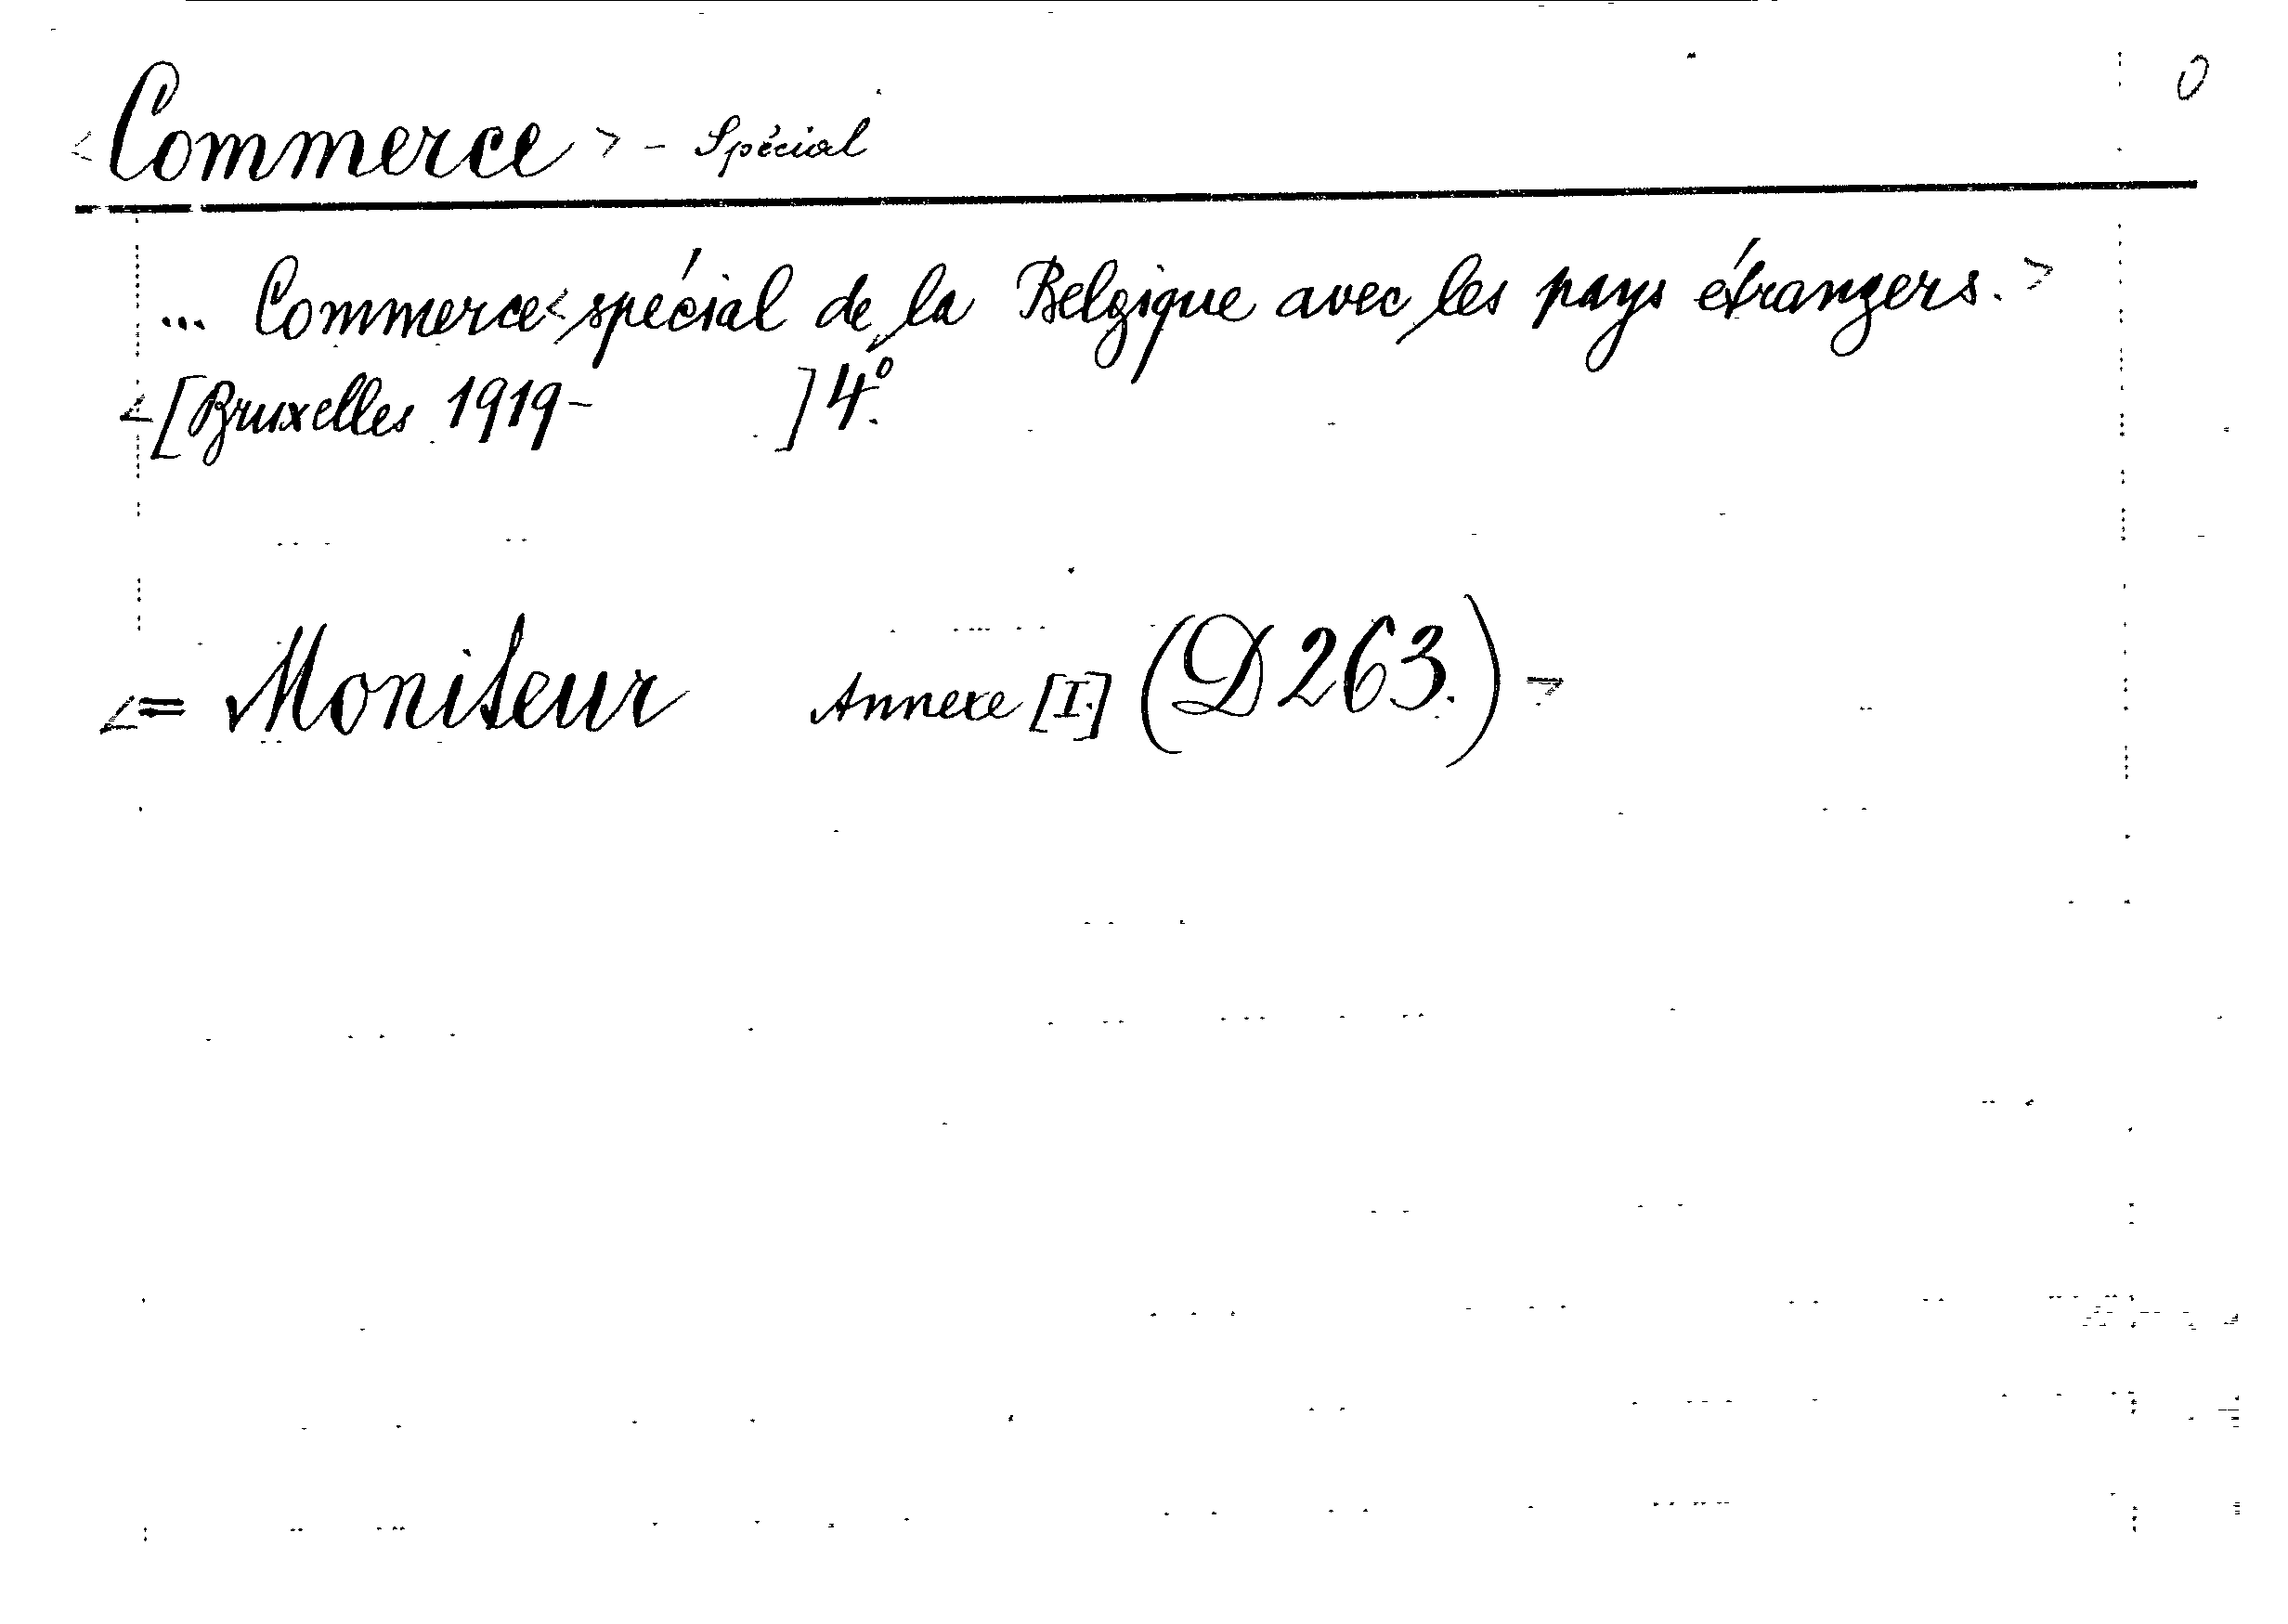 0
<Commerce> - Spécial
... Commerce <spécial de la Belgique avec les pays étrangers.>
<[Bruxelles 1919- ] 4°.
<= Moniteur Annexe [I.] (D 263.)>